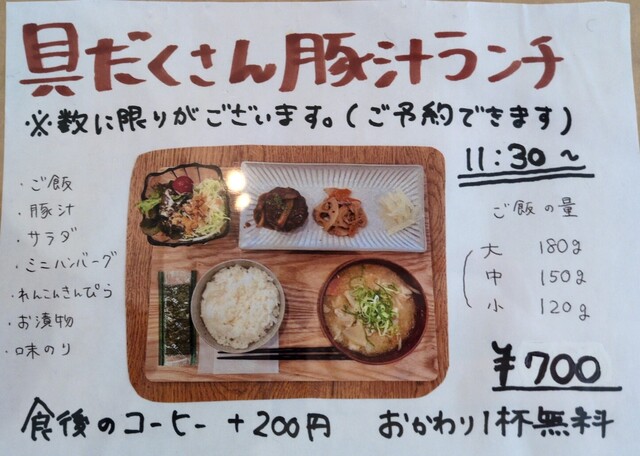 具だくさん豚汁ランチ
※数に限りがございます。(ご予約できます)
11:30〜
・ご飯
・豚汁
・サラダ
・ミニハンバーグ
・れんこんきんぴら
・お漬物
・味のり
ご飯の量
大 180g
中 150g
小 120g
¥700
食後のコーヒー +200円 おかわり1杯無料